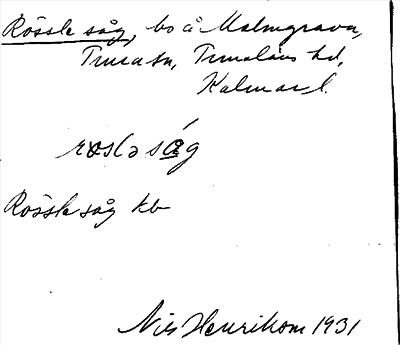 Rössle såg, bo å Malmgrava,
Tuna sn, Tunaläns hd,
Kalmar l.
røslə såg
Rössle såg kb
Nils Henrikson 1931